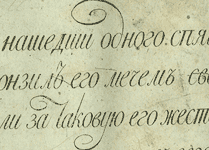 нашедши одного спя
онзилъ его мечемъ
ли за таковую его жест